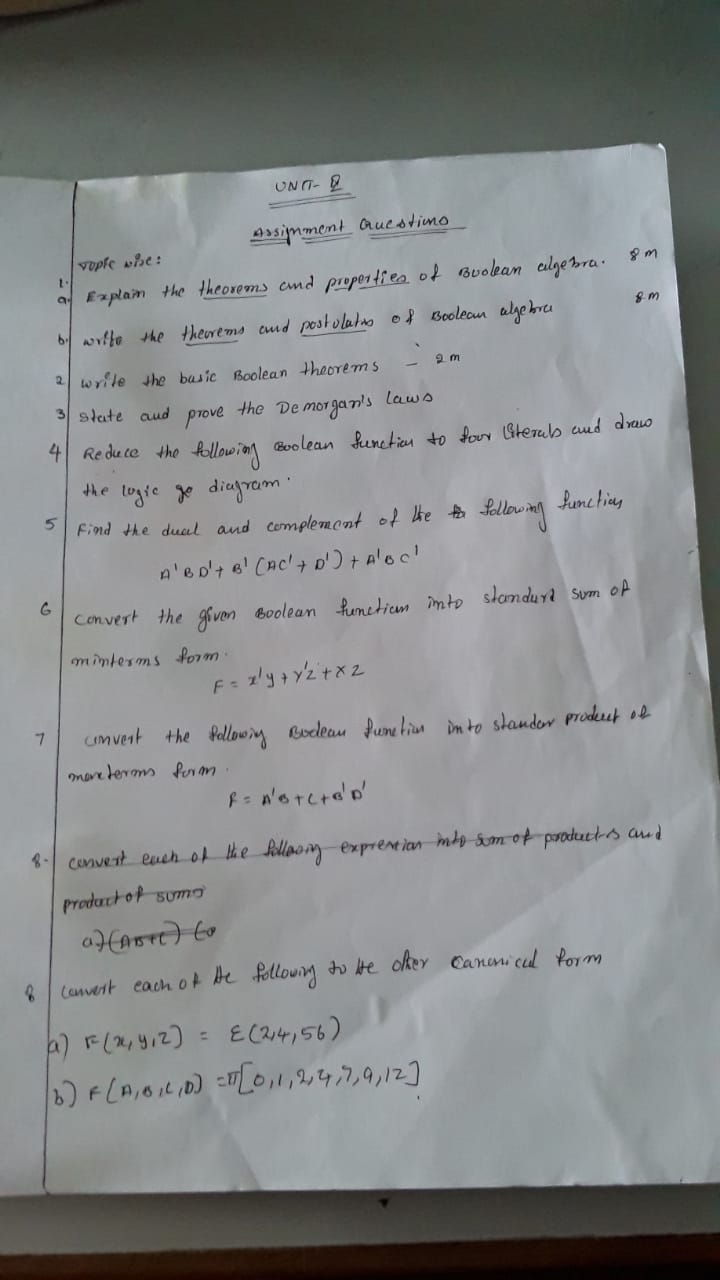 UNIT- II
Assignment Questions
Topic wise:
1.
a) Explain the theorems and properties of Boolean algebra. 8m
b) write the theorems and postulates of Boolean algebra 8m
2 write the basic Boolean theorems - 2m
3 state and prove the Demorgan's laws
4 Reduce the following Boolean function to four literals and draw
the logic diagram.
5 Find the dual and complement of the following function
A'BD'+B'(AC'+D')+A'BC'
6 convert the given Boolean function into standard sum of
minterms form.
F = x'y+y'z+xz
7 convert the following Boolean function into standar product of
maxterms form.
F = A'B+C+B'D'
8. convert each of the following expression into sum of products and
product of sums
a) (AB+C)
8 convert each of the following to the other canonical form
a) F(x,y,z) = Σ(2,4,56)
b) F(A,B,C,D) = π[0,1,2,4,7,9,12]